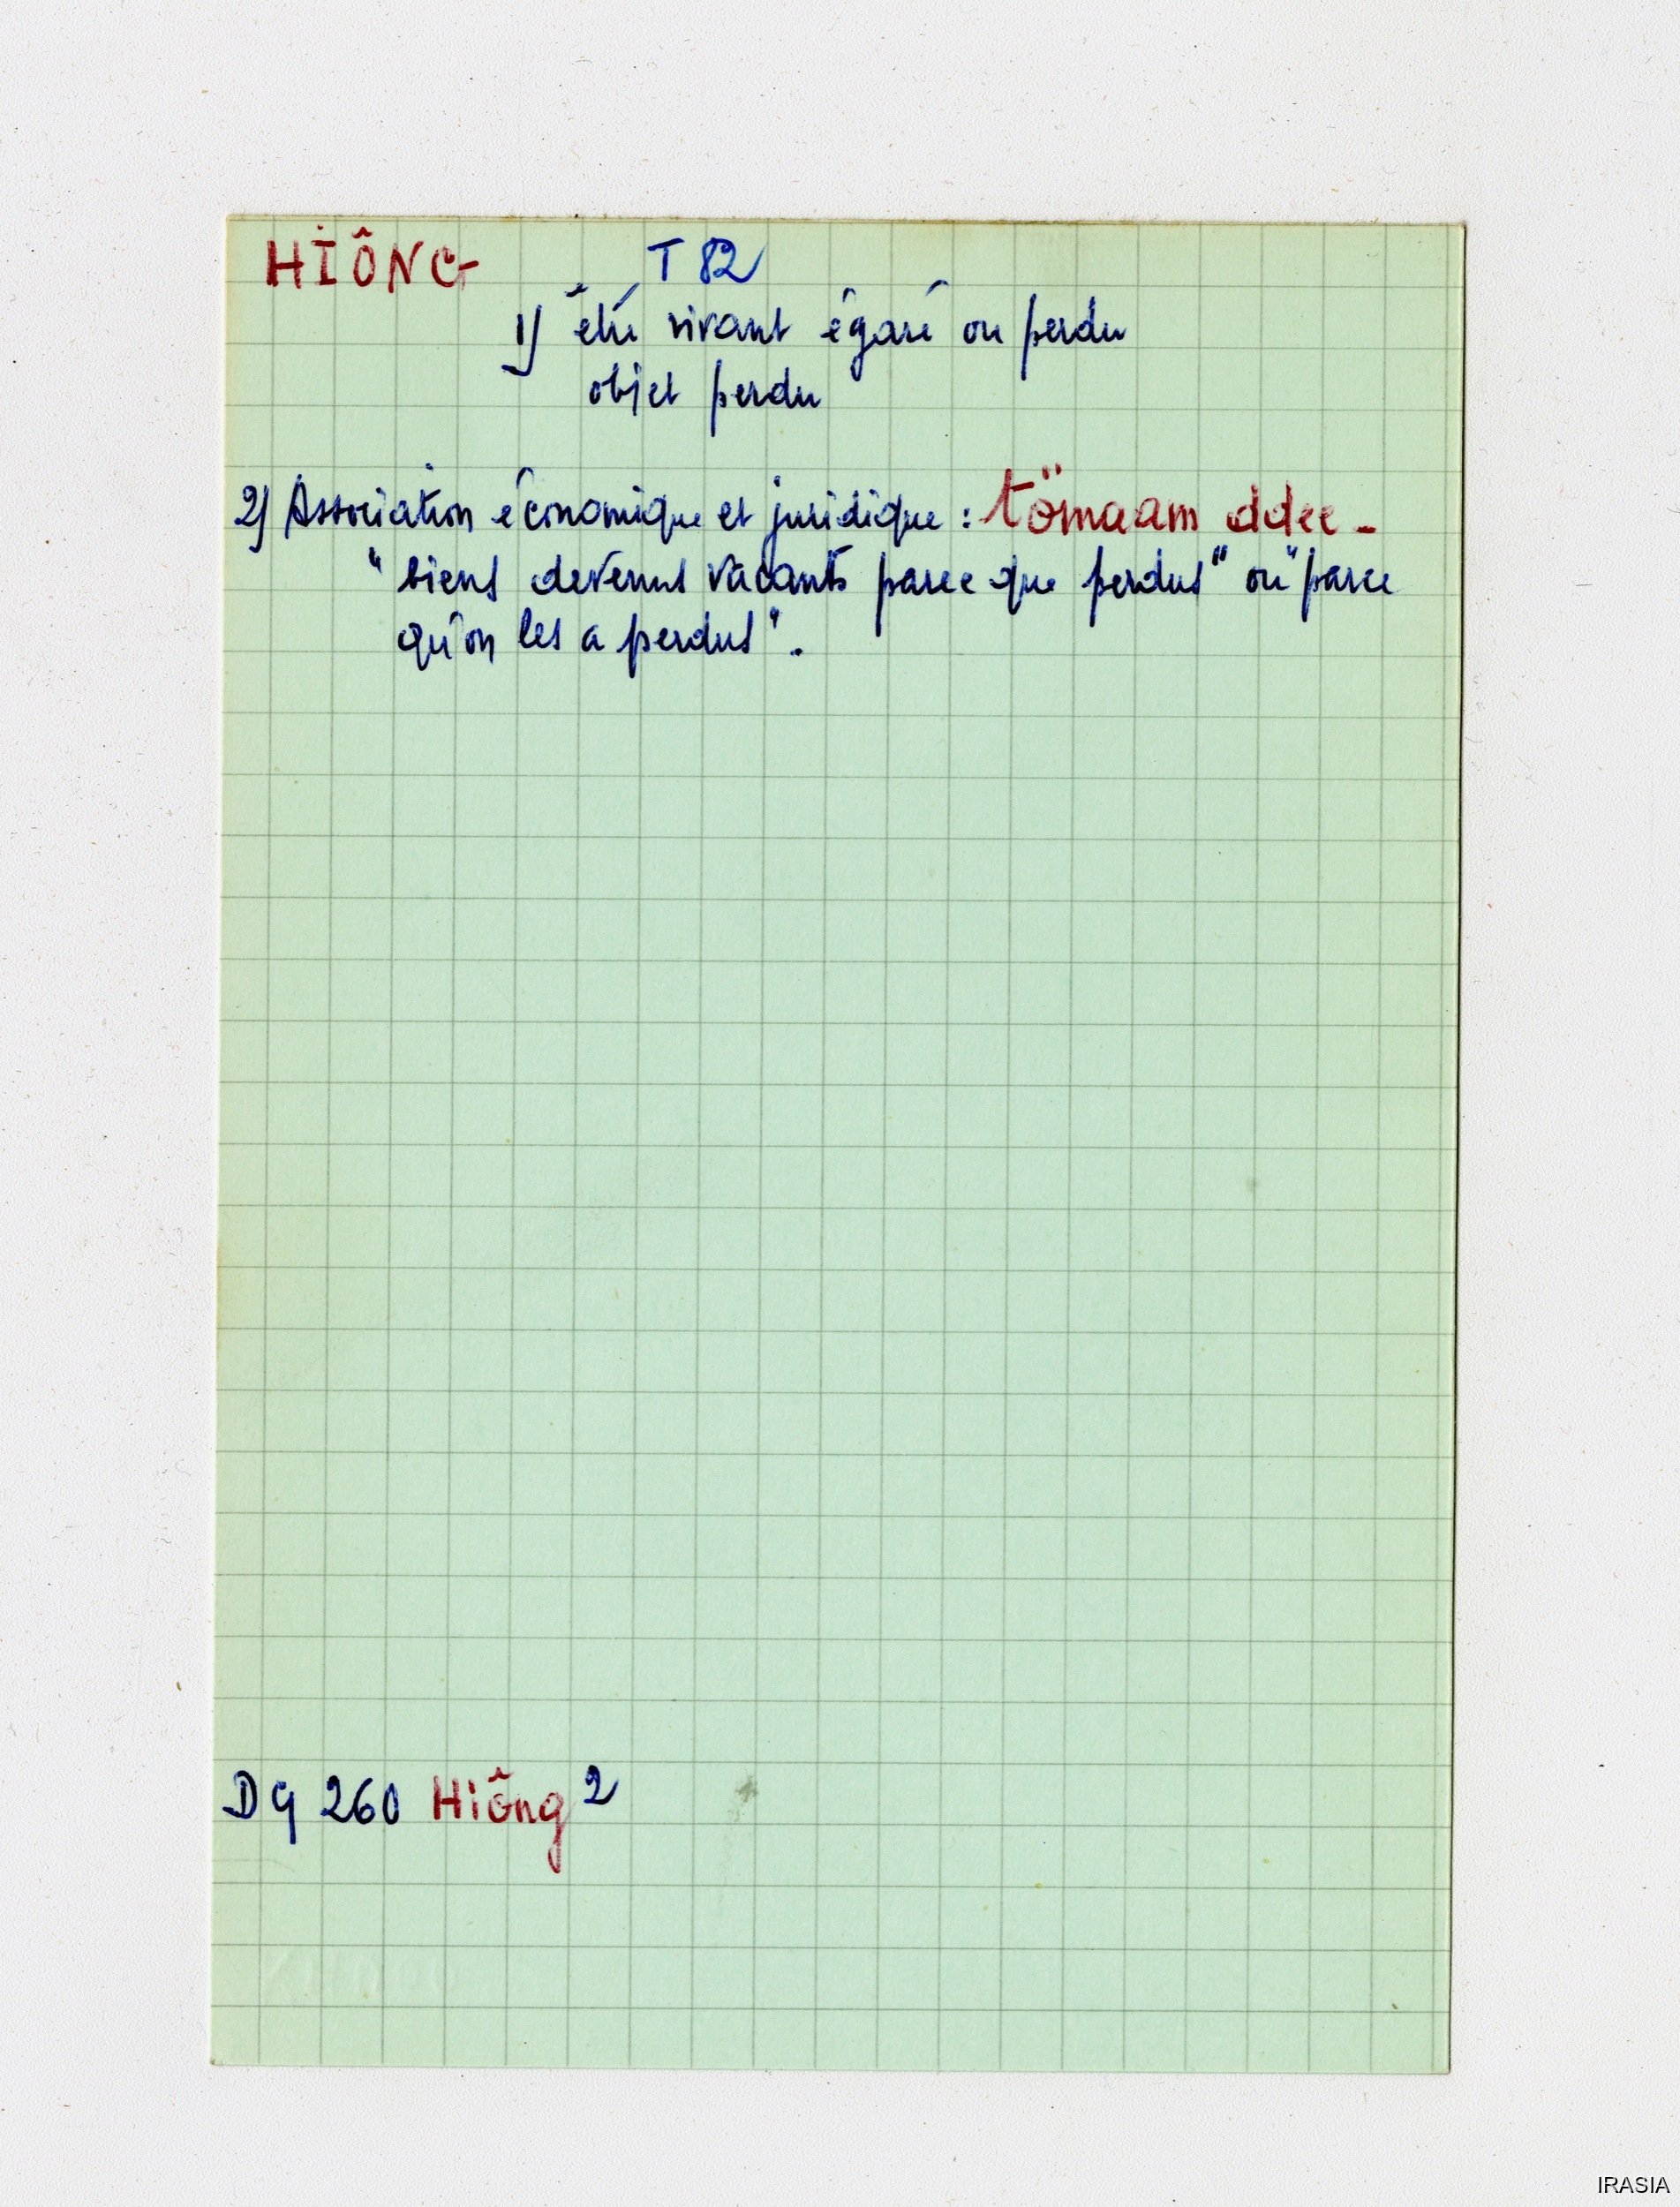 HIÔNG T 82
1) être vivant égaré ou perdu
objet perdu
2) Association économique et juridique : tömaam ddee -
" biens devenus vacants parce que perdus" ou "parce
qu'on les a perdus".
DG 260 Hiông 2
IRASIA